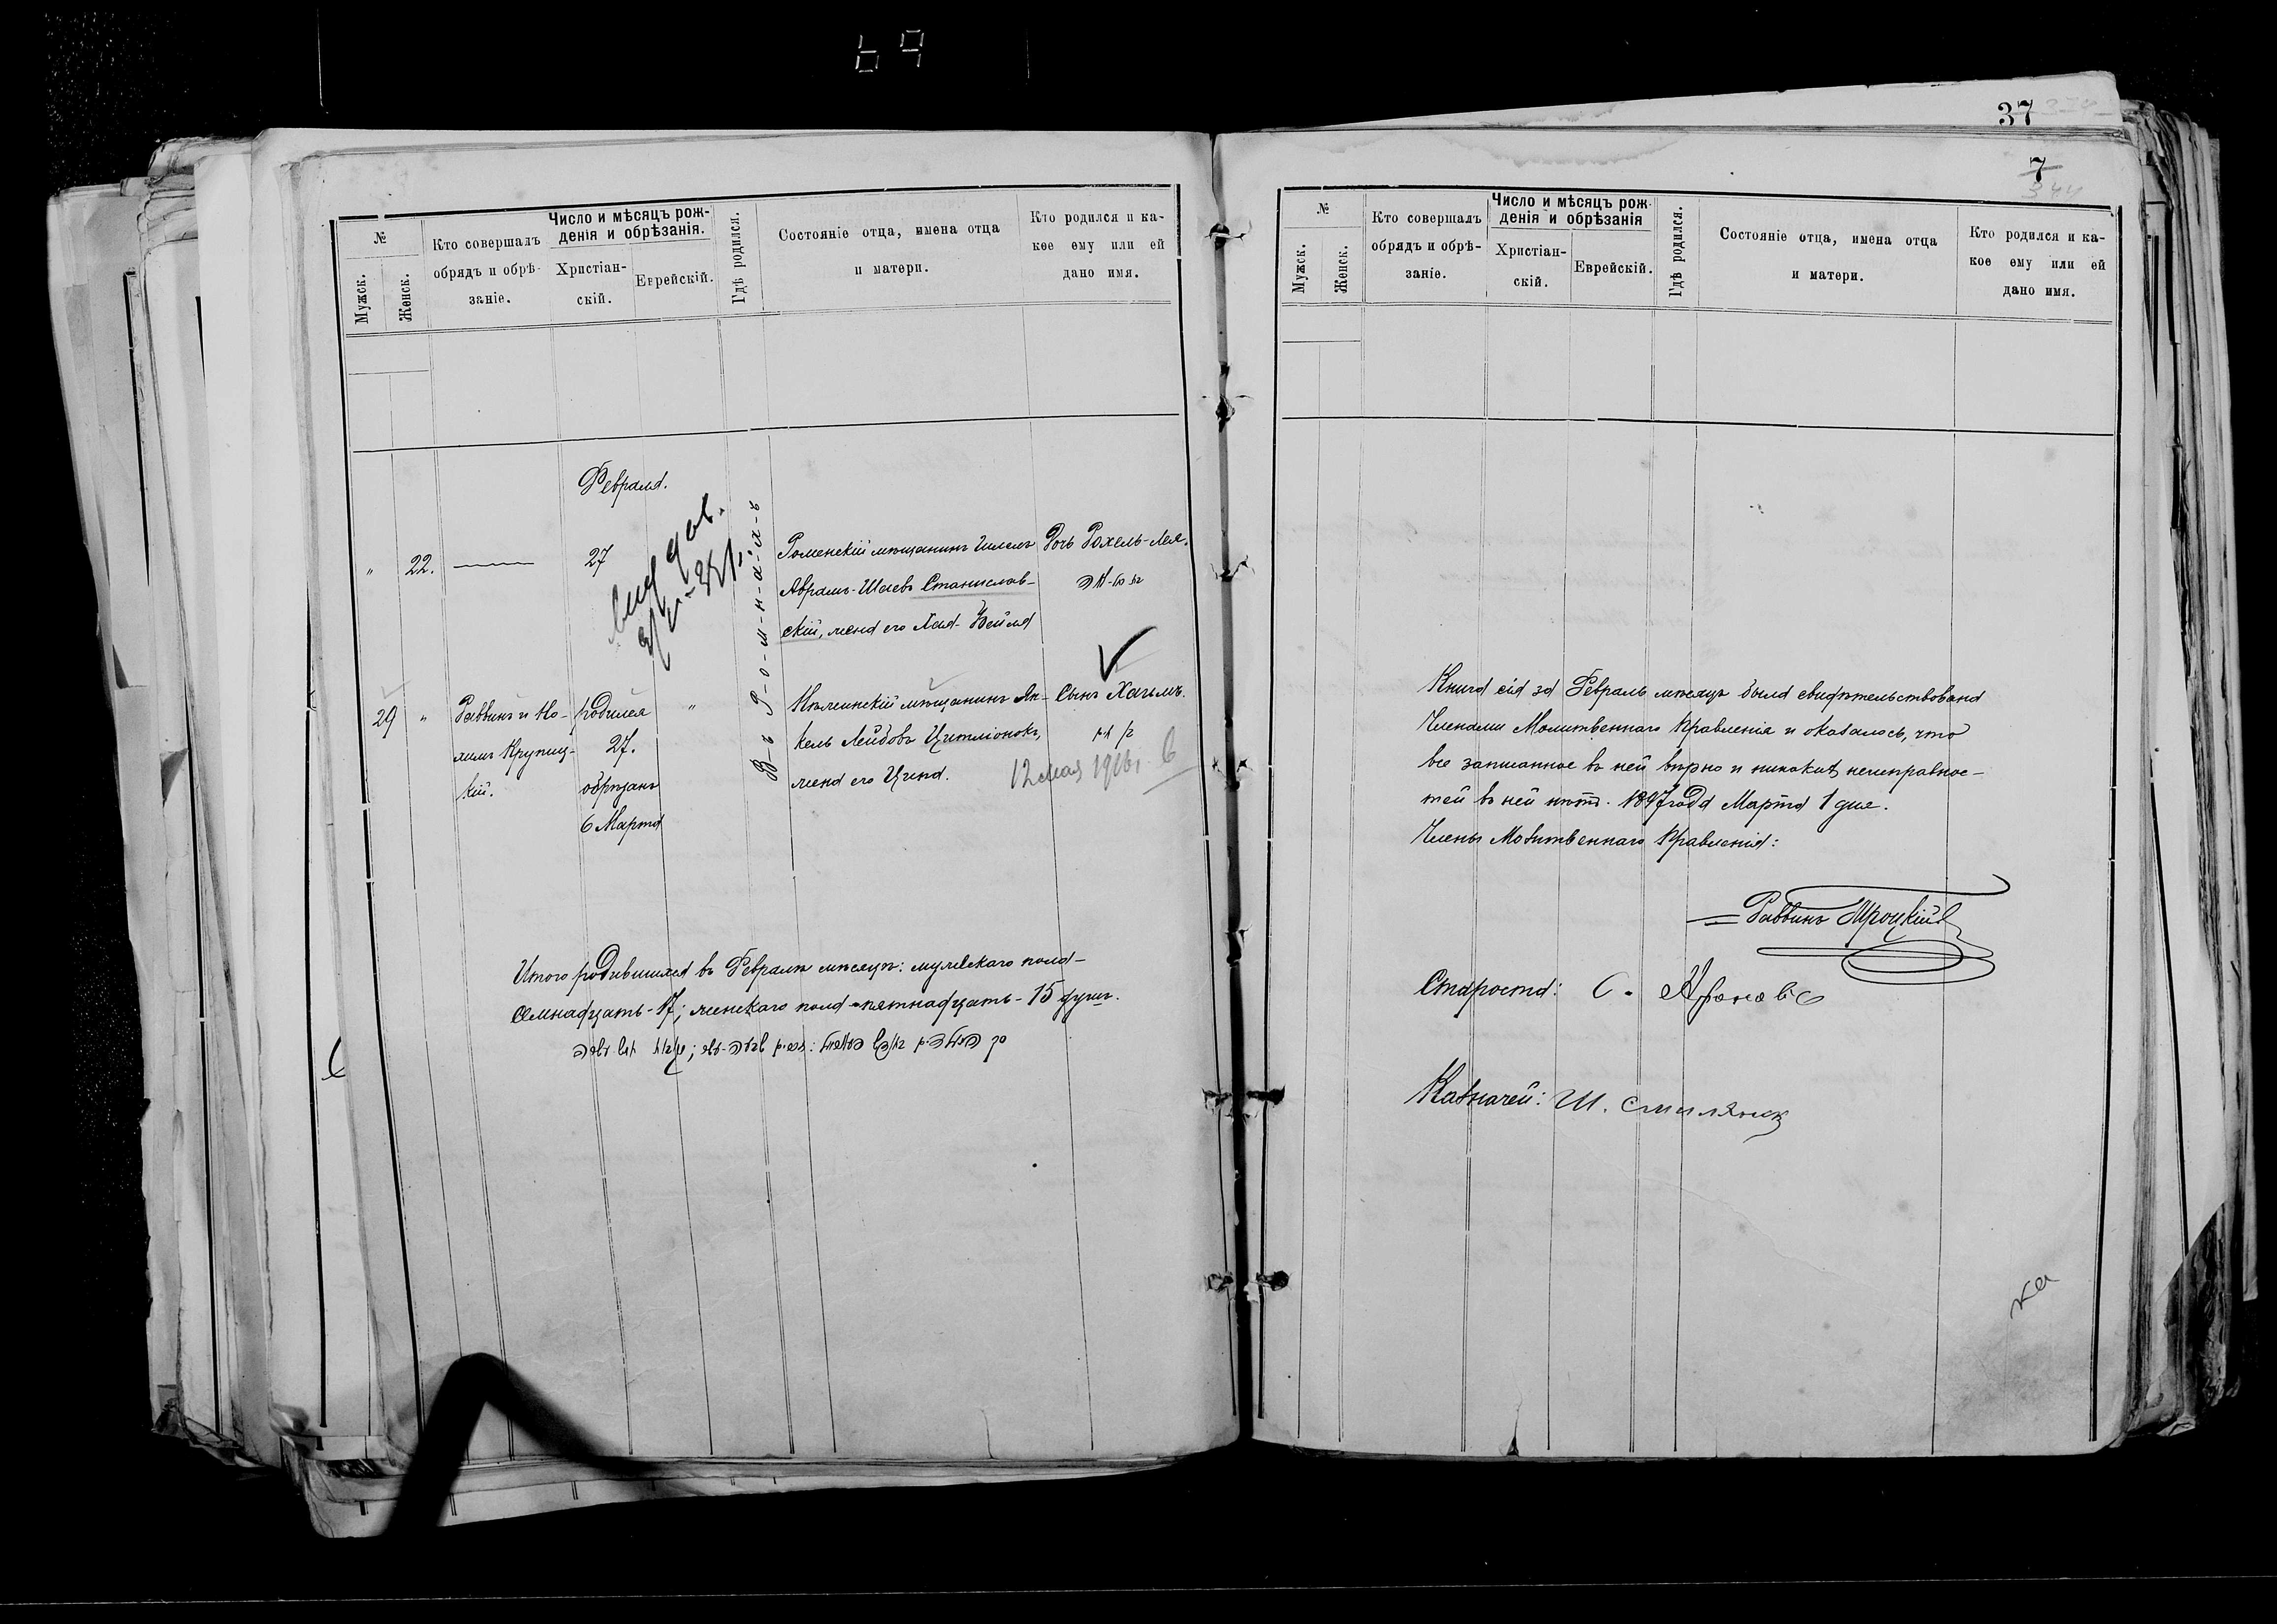 69
37
№
Мужск.
Женск.
Кто совершалъ
обрядъ и обрѣ-
заніе.
Число и мѣсяцъ рож-
денія и обрѣзанія.
Христіан-
скій.
Еврейскій.
Гдѣ родился.
Состояніе отца, имена отца
и матери.
Кто родился и ка-
кое ему или ей
дано имя.
Февраля.
"
22.
27
Въ Р-о-м-н-а-х-ъ
Роменскій мѣщанинъ
Аврамъ-Шаевъ Станислав-
скій, жена его Хая-Бейла
Дочь Рохель-Лея.
29
"
Раввинъ и Но-
химъ Крупиц-
кій.
родился
27.
обрѣзанъ
6 Марта
"
мѣщанинъ Ян-
кель Лейбовъ Цитліонокъ,
жена его Ципа.
Сынъ Хаимъ.
12 мая 1916г.
Итого родившихся въ Февралѣ мѣсяцѣ: мужескаго пола-
семнадцать-17; женскаго пола-пятнадцать-15 душъ.
7
344
№
Мужск.
Женск.
Кто совершалъ
обрядъ и обрѣ-
заніе.
Число и мѣсяцъ рож-
денія и обрѣзанія
Христіан-
скій.
Еврейскій.
Гдѣ родился.
Состояніе отца, имена отца
и матери.
Кто родился и ка-
кое ему или ей
дано имя.
Книга сія за Февраль мѣсяцъ была свидѣтельствована
Членами Молитвеннаго Правленія и оказалось, что
все записанное въ ней вѣрно и никакихъ неисправнос-
тей въ ней нѣтъ. 1897 года Марта 1 дня.
Члены Молитвеннаго Правленія:
Раввинъ Троцкій
Староста: С.
Казначей: Ш.